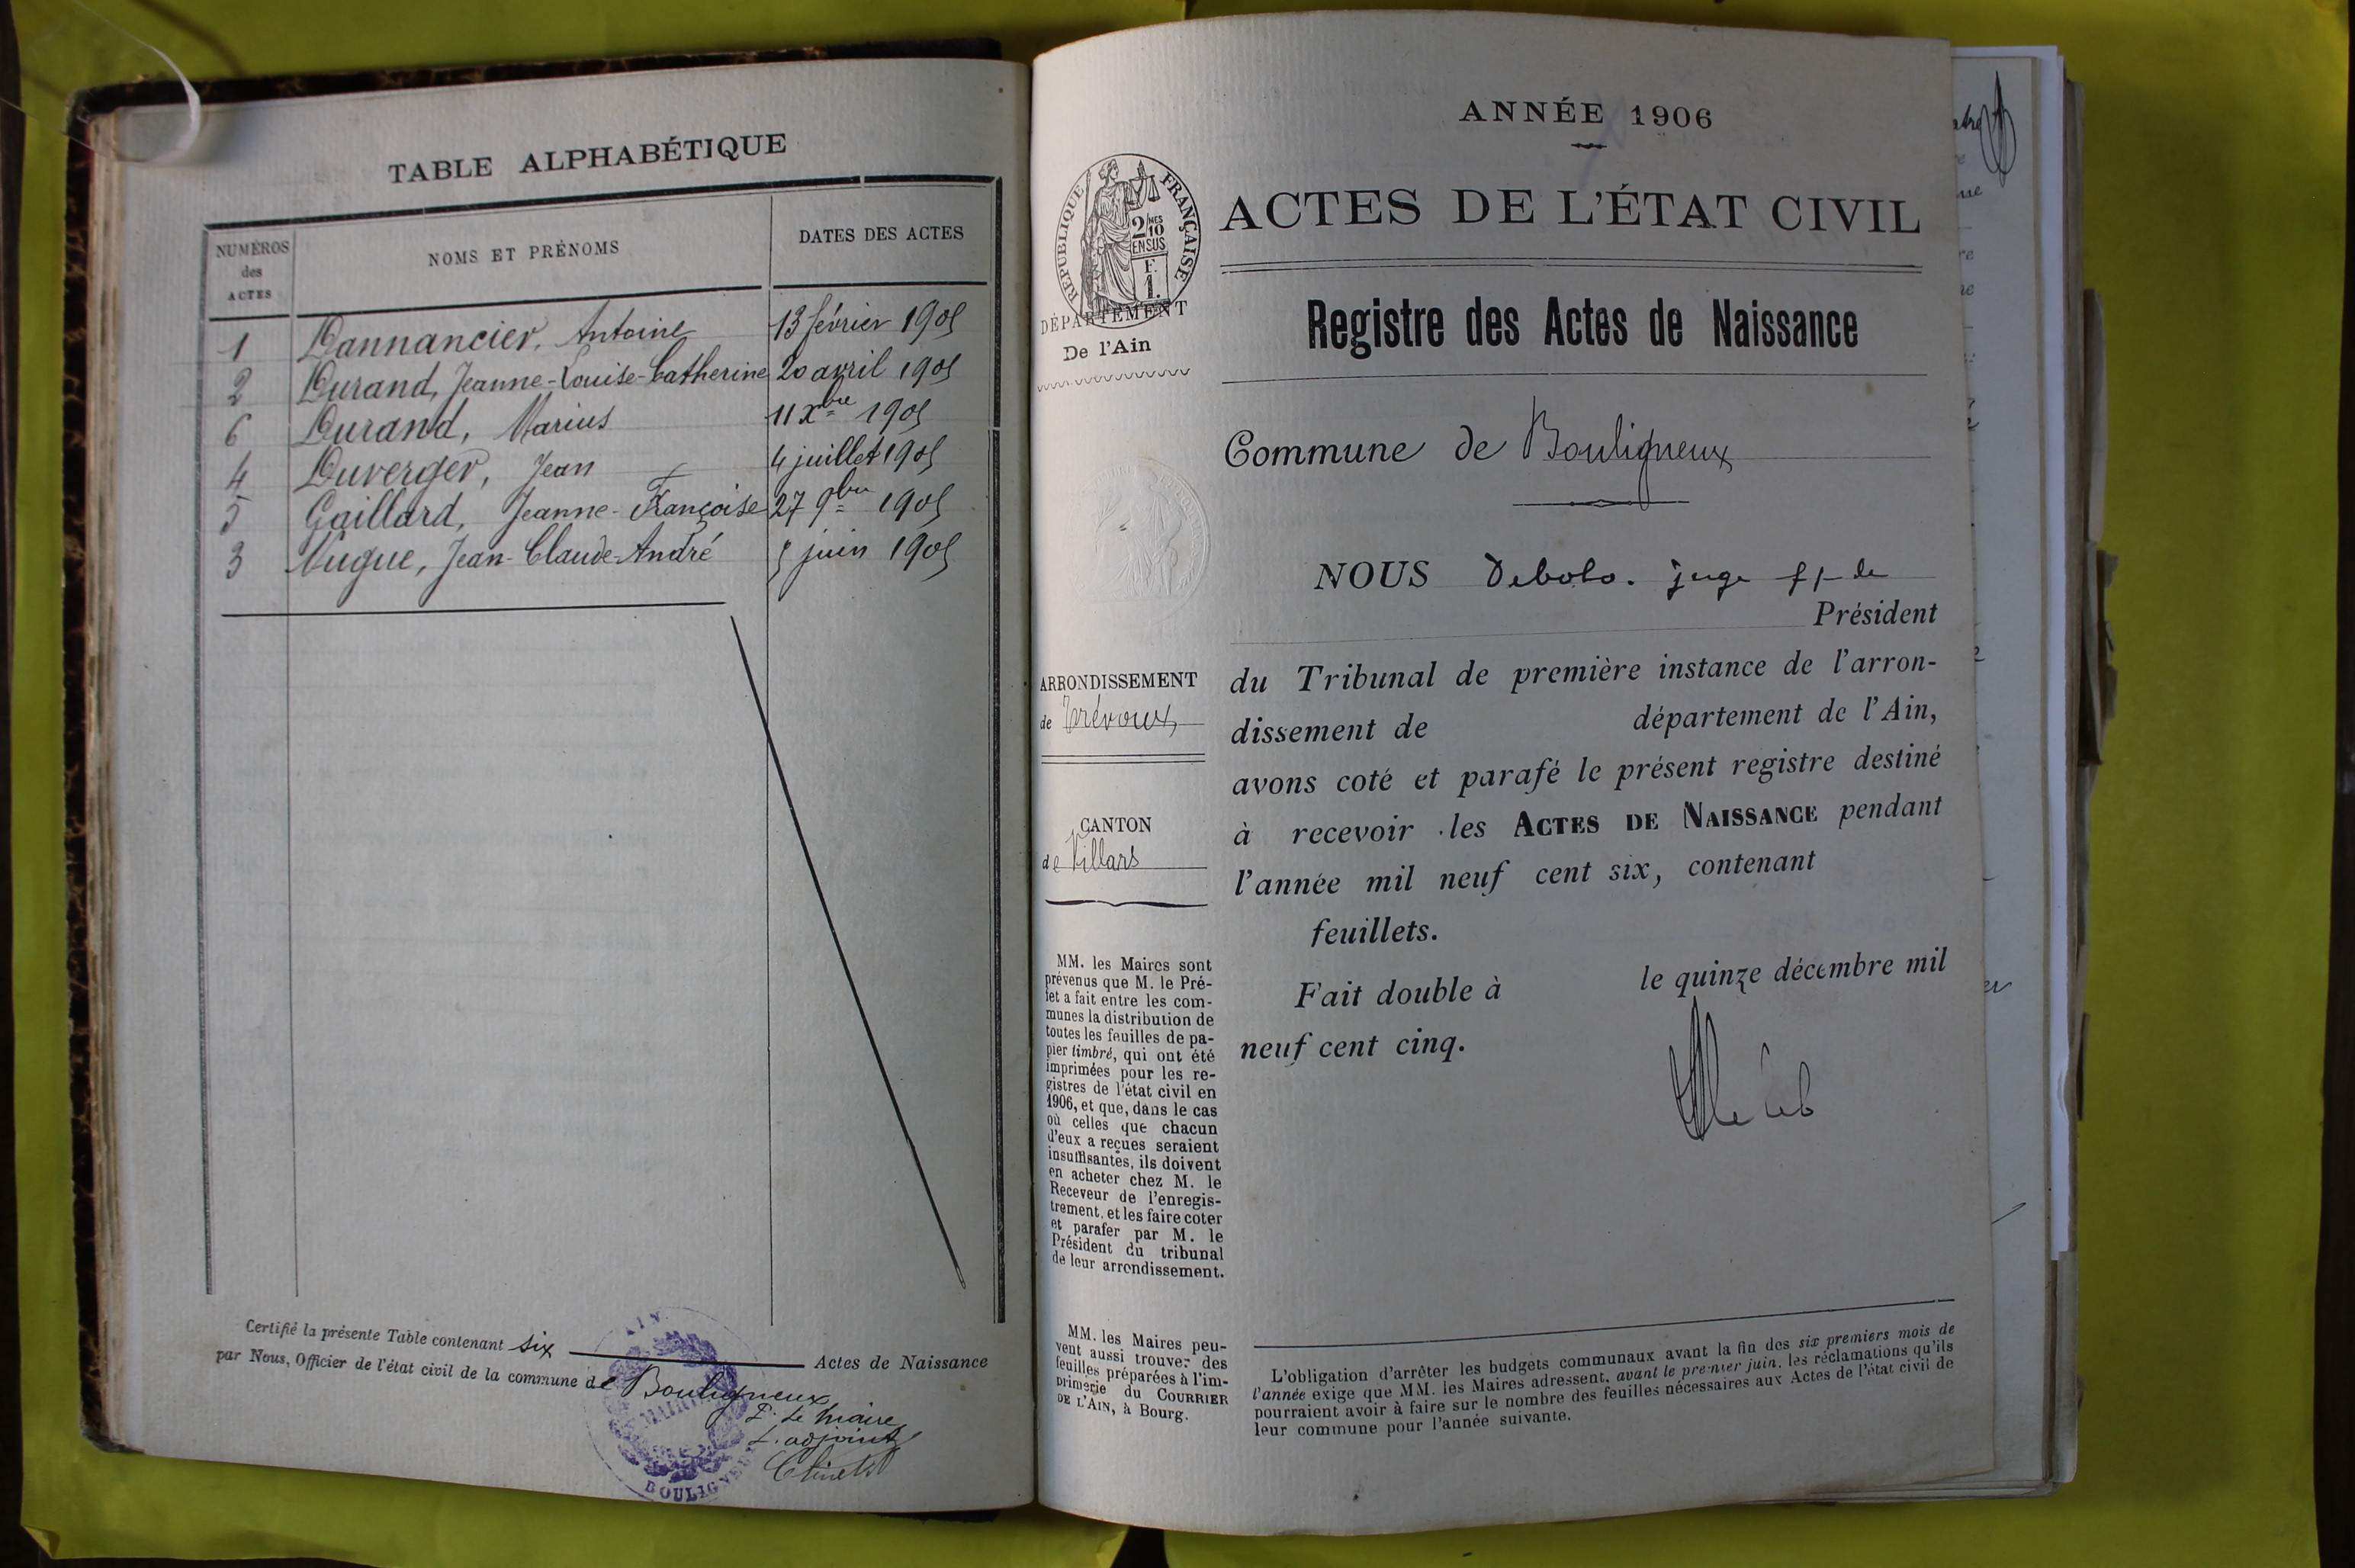 TABLE ALPHABÉTIQUE
NUMÉROS
des
ACTES
NOMS ET PRÉNOMS
DATES DES ACTES
1 Dannancier, Antoine 13 février 1905
2 Durand, Jeanne-Louise-Catherine 20 avril 1905
6 Durand, Marius 11 Xbre 1905
4 Duverger, Jean 4 juillet 1905
5 Gaillard, Jeanne-Françoise 27 9bre 1905
3 Nugue, Jean-Claude-André 5 juin 1905
Certifié la présente Table contenant six Actes de Naissance
par Nous, Officier de l'état civil de la commune de Bouligneux
P. le maire
L. adjoint
AIN
MAIRIE
ANNÉE 1906
RÉPUBLIQUE FRANÇAISE
2/MES
10
EN SUS
F.
1.
DÉPARTEMENT
De l'Ain
ACTES DE L'ÉTAT CIVIL
Registre des Actes de Naissance
Commune de Bouligneux
NOUS juge ff de
Président
ARRONDISSEMENT
de Trévoux
du Tribunal de première instance de l'arron-
dissement de département de l'Ain,
avons coté et parafé le présent registre destiné
à recevoir les ACTES DE NAISSANCE pendant
l'année mil neuf cent six, contenant
feuillets.
Fait double à le quinze décembre mil
neuf cent cinq.
CANTON
de Villars
MM. les Maires sont
prévenus que M. le Pré-
fet a fait entre les com-
munes la distribution de
toutes les feuilles de pa-
pier timbré, qui ont été
imprimées pour les re-
gistres de l'état civil en
1906, et que, dans le cas
où celles que chacun
d'eux a reçues seraient
insuffisantes, ils doivent
en acheter chez M. le
Receveur de l'enregis-
trement, et les faire coter
et parafer par M. le
Président du tribunal
de leur arrondissement.
MM. les Maires peu-
vent aussi trouver des
feuilles préparées à l'im-
primerie du COURRIER
DE L'AIN, à Bourg.
L'obligation d'arrêter les budgets communaux avant la fin des six premiers mois de
l'année exige que MM. les Maires adressent, avant le premier juin, les réclamations qu'ils
pourraient avoir à faire sur le nombre des feuilles nécessaires aux Actes de l'état civil de
leur commune pour l'année suivante.